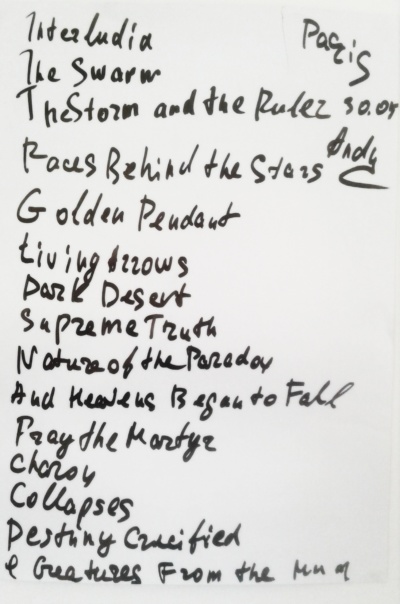 Interludia
Paris
The Swarm
The Storm and the Ruler 30.05
Races Behind the Stars Andy
Golden Pendant
Living Arrows
Dark Desert
Supreme Truth
Nature of the Paradox
And Heavens Began to Fall
Pray the Martyr
Charon
Collapses
Destiny Crucified
Creatures From the Mud